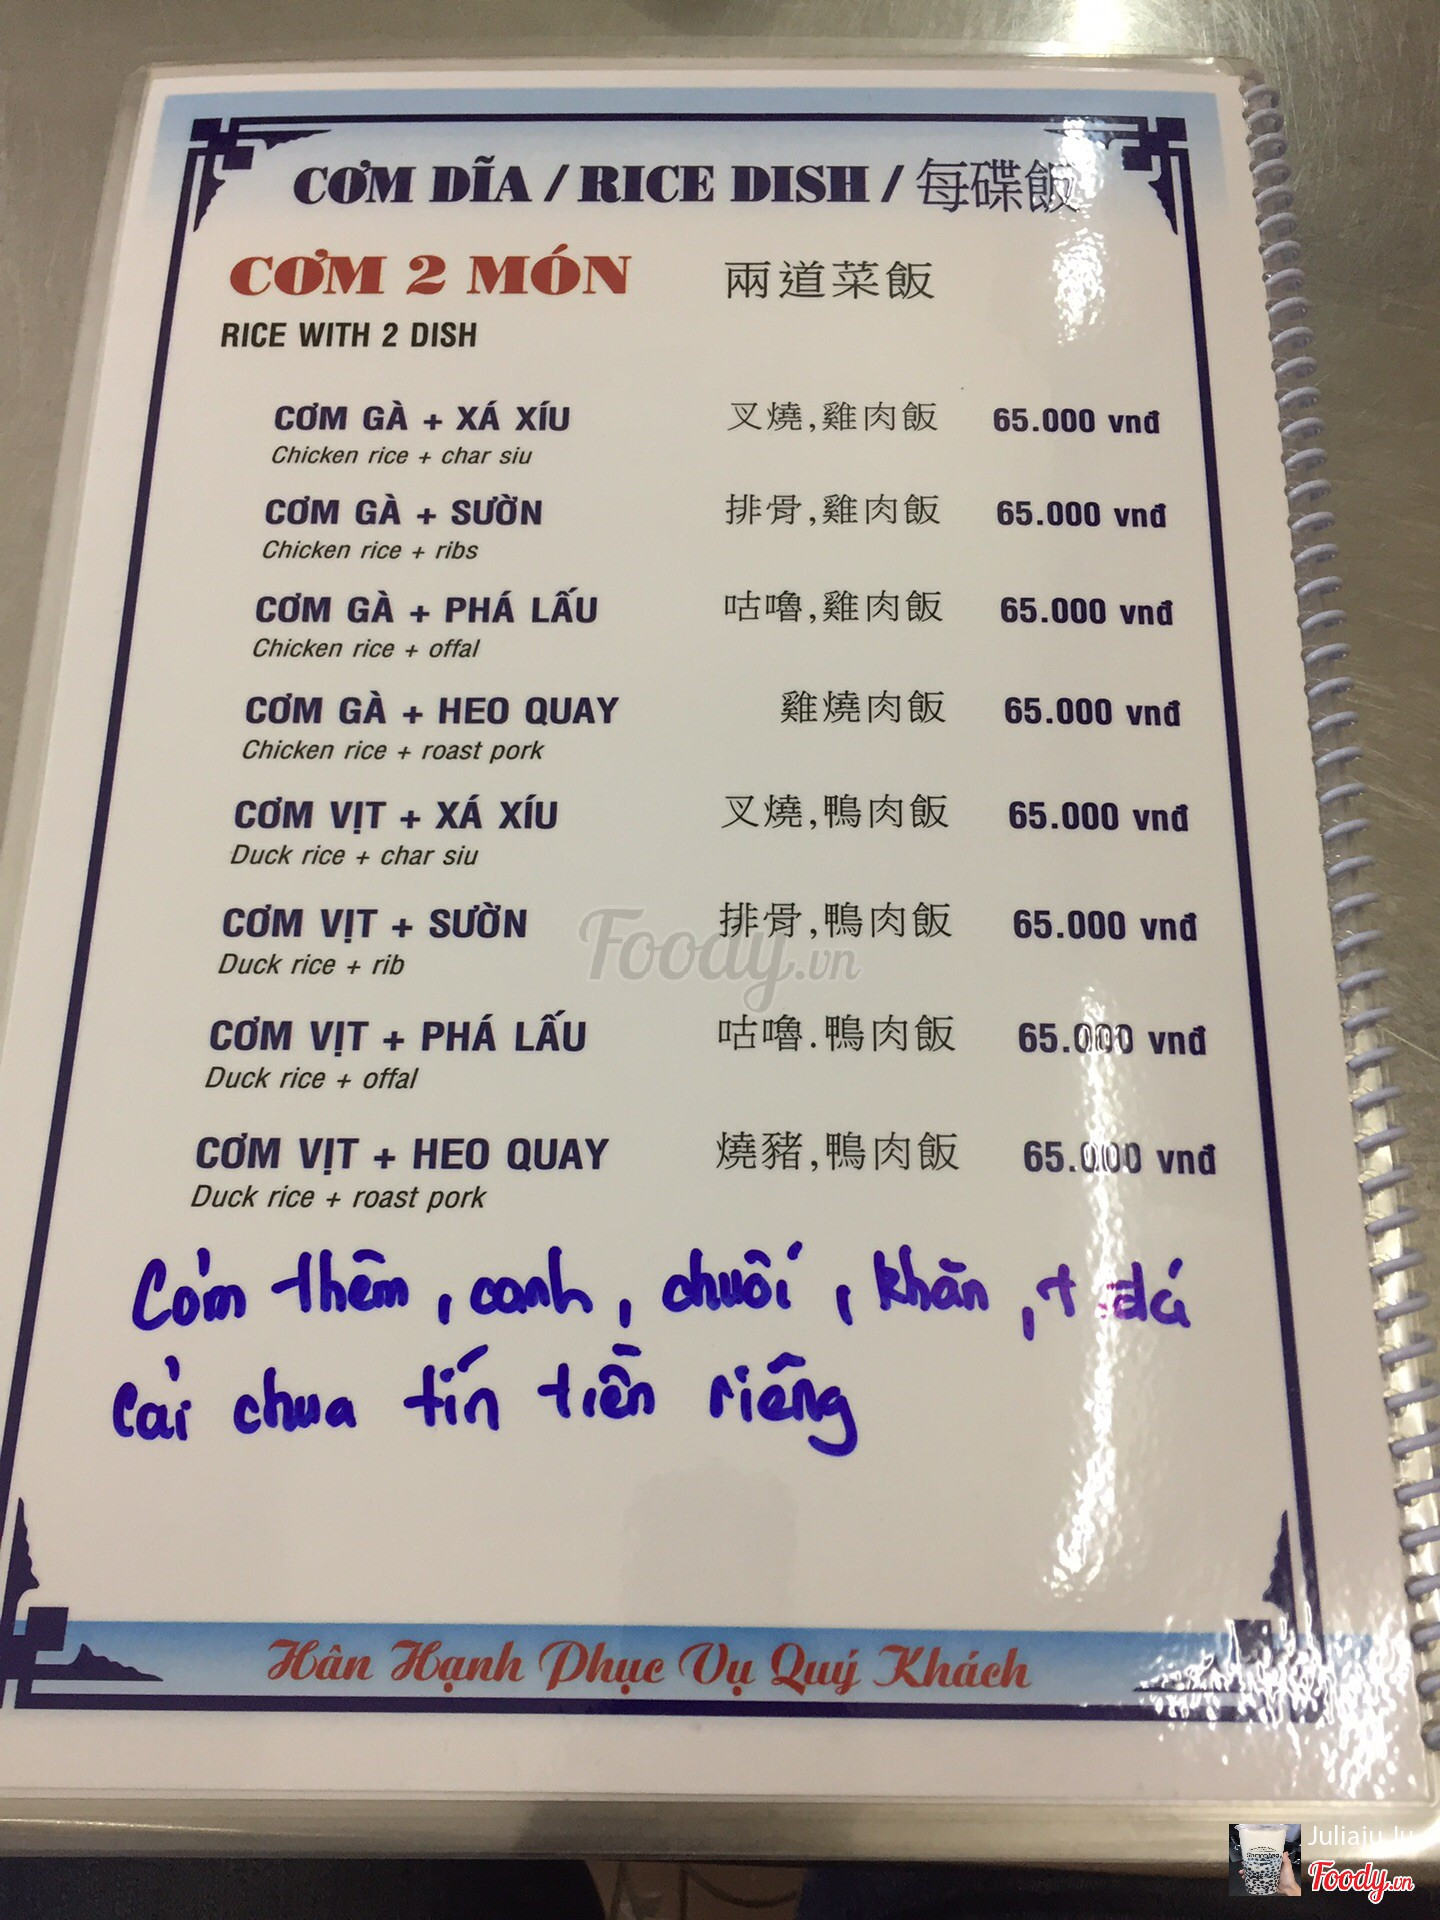 CƠM DĨA / RICE DISH / 每碟飯
CƠM 2 MÓN 兩道菜飯
RICE WITH 2 DISH
CƠM GÀ + XÁ XÍU 叉燒,雞肉飯 65.000 vnđ
Chicken rice + char siu
CƠM GÀ + SƯỜN 排骨,雞肉飯 65.000 vnđ
Chicken rice + ribs
CƠM GÀ + PHÁ LẤU 咕嚕,雞肉飯 65.000 vnđ
Chicken rice + offal
CƠM GÀ + HEO QUAY 雞燒肉飯 65.000 vnđ
Chicken rice + roast pork
CƠM VỊT + XÁ XÍU 叉燒,鴨肉飯 65.000 vnđ
Duck rice + char siu
CƠM VỊT + SƯỜN 排骨,鴨肉飯 65.000 vnđ
Duck rice + rib
Foody.vn
CƠM VỊT + PHÁ LẤU 咕嚕.鴨肉飯 65.000 vnđ
Duck rice + offal
CƠM VỊT + HEO QUAY 燒豬,鴨肉飯 65.000 vnđ
Duck rice + roast pork
Cơm thêm, canh, chuối, khăn, t.đá
Cải chua tín tiền riêng
Hân Hạnh Phục Vụ Quý Khách
Juliaju Ju
Foody.vn